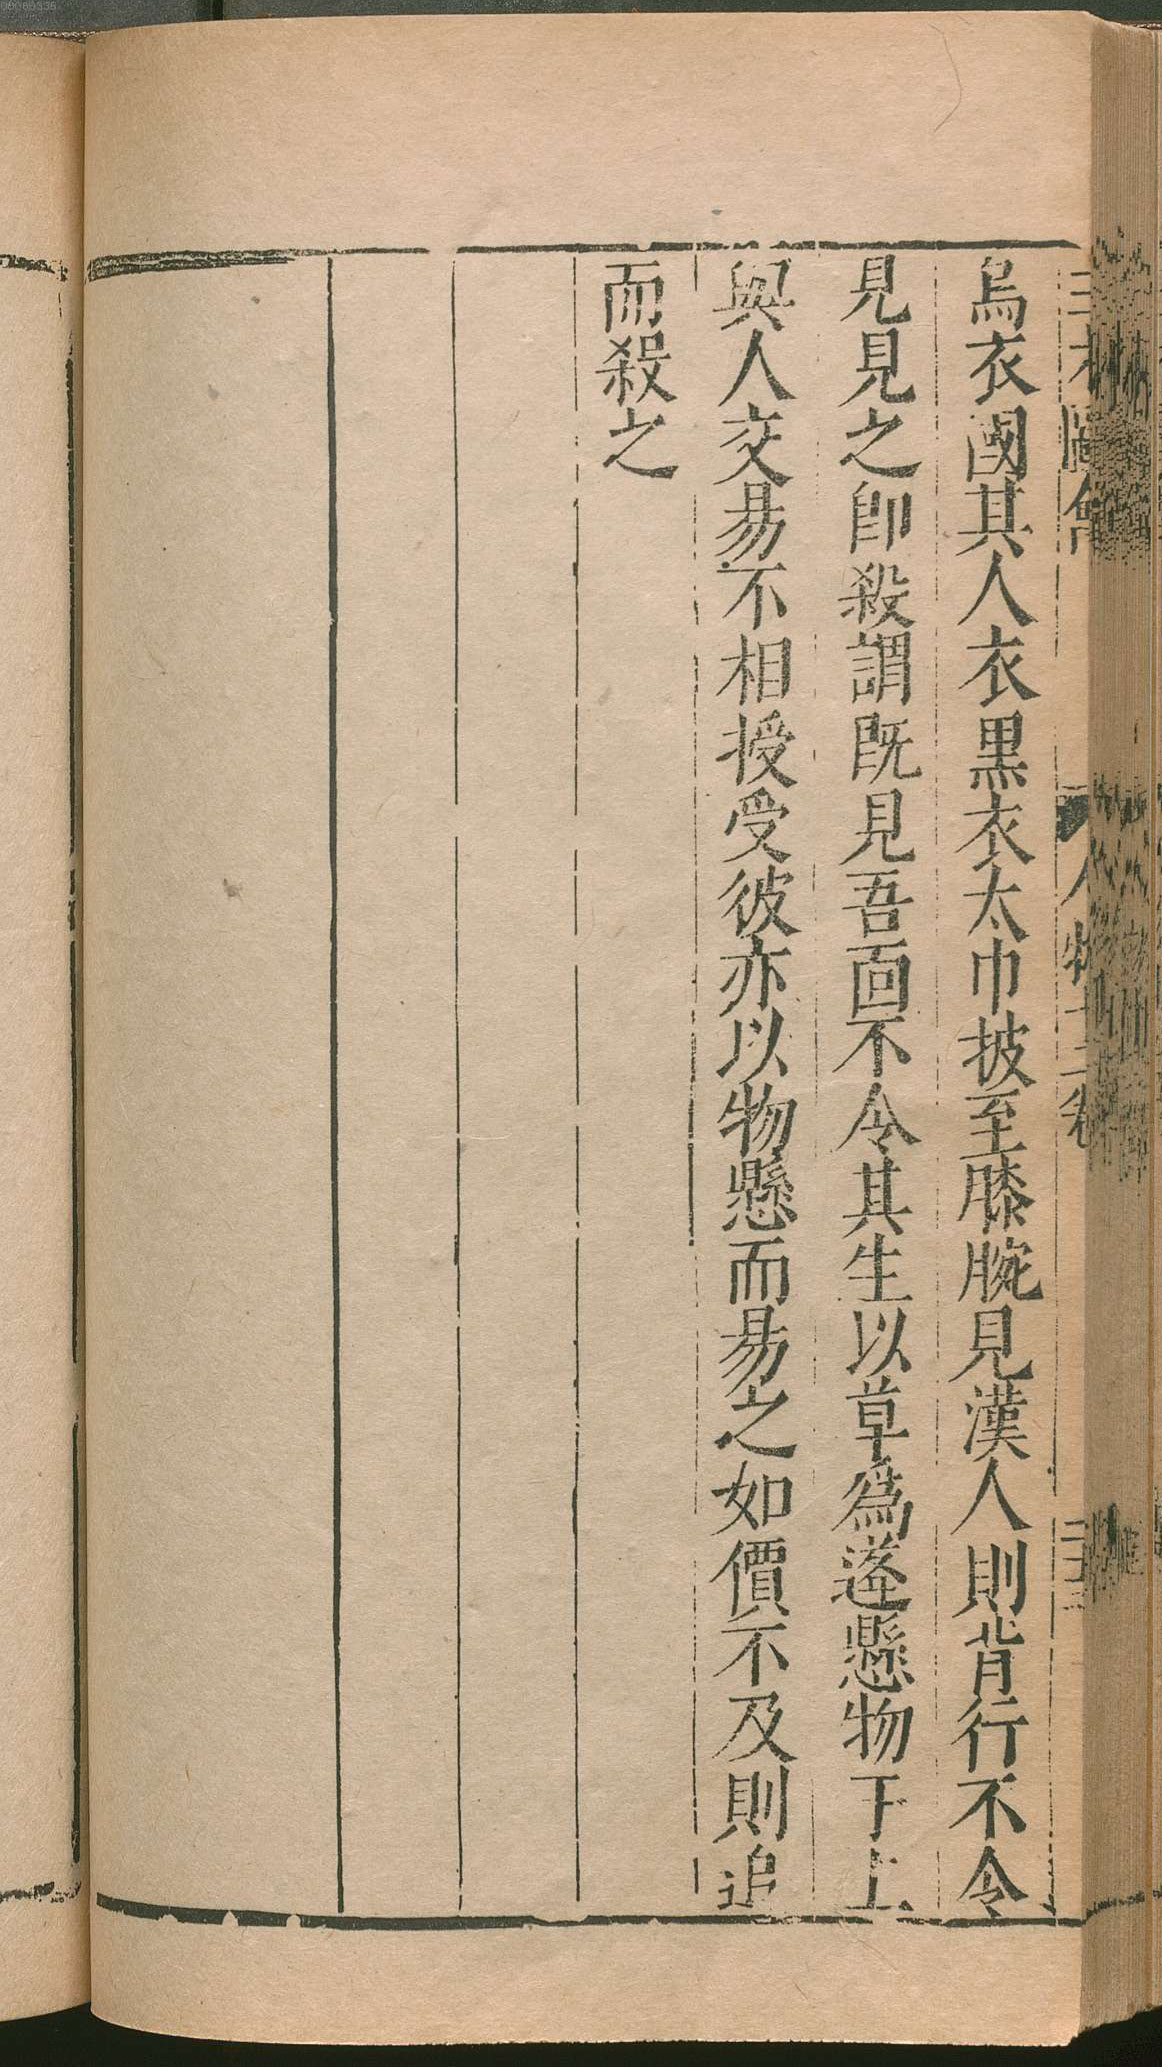 烏衣國其人衣黒衣太巾披至膝腕見漢人則背行不令
見見之卽殺謂既見吾面不令其生以草爲蓬懸物于上
與人交易不相授受彼亦以物懸而易之如價不及則追
而殺之